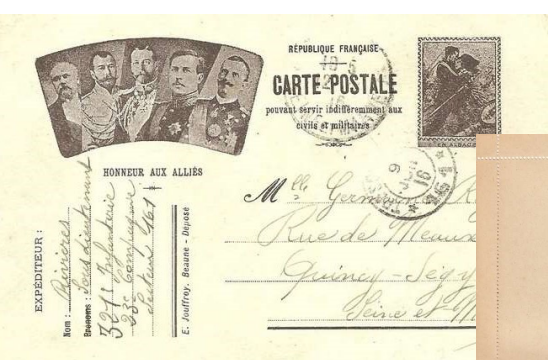 RÉPUBLIQUE FRANÇAISE
CARTE POSTALE
pouvant servir indifféremment aux
civils et militaires
EN ALSACE
HONNEUR AUX ALLIÉS
EXPÉDITEUR :
Nom : Rivières
Prénoms : Sous Lieutenant
321e Infanterie
23e Compagnie
Secteur 161
E. Jouffroy, Beaune - Déposé
9
16
161
Mlle Germaine R
Rue de Meaux
Quincy-Ségy
Seine et M